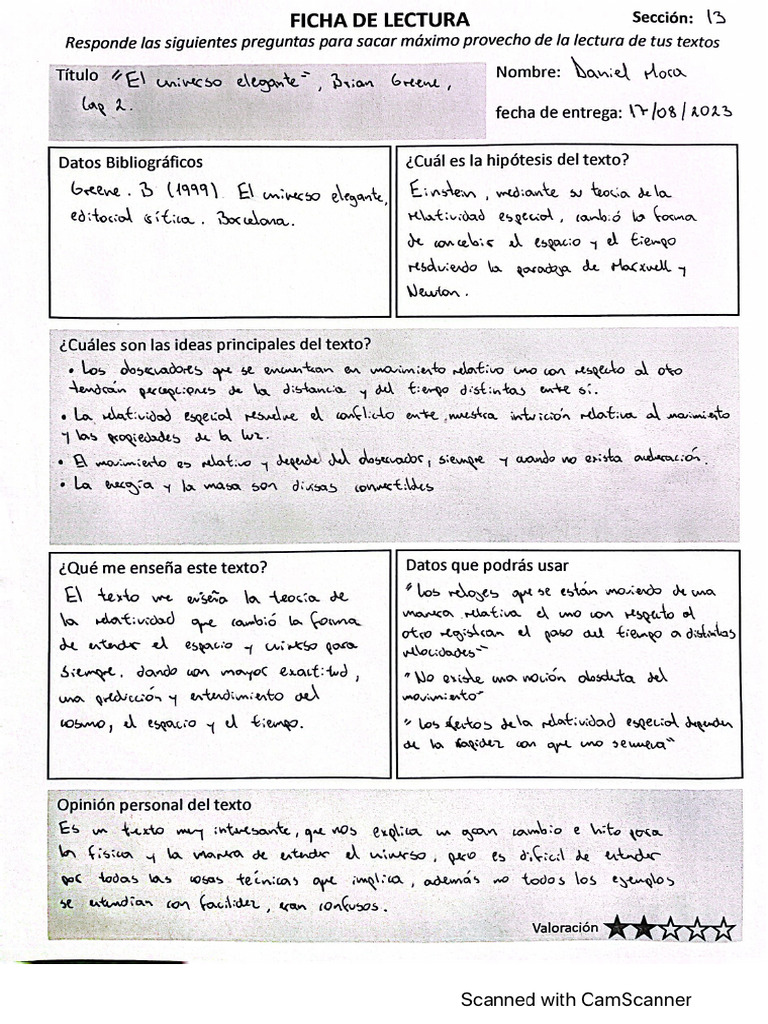 FICHA DE LECTURA
Sección: 13
Responde las siguientes preguntas para sacar máximo provecho de la lectura de tus textos
Título "El universo elegante", Brian Greene,
Cap 2.
Nombre: Daniel Mora
fecha de entrega: 17/08/2023
Datos Bibliográficos
Greene. B (1999). El universo elegante,
editorial crítica. Barcelona.
¿Cuál es la hipótesis del texto?
Einstein, mediante su teoria de la
relatividad especial, cambió la forma
de concebir el espacio y el tiempo
resolviendo la paradoja de Maxwell y
Newton.
¿Cuáles son las ideas principales del texto?
• Los observadores que se encuentran en movimiento relativo uno con respecto al otro
tendrán percepciones de la distancia y del tiempo distintas entre sí.
• La relatividad especial resuelve el conflicto entre nuestra intuición relativa al movimiento
y las propiedades de la luz.
• El movimiento es relativo y depende del observador, siempre y cuando no exista aceleración.
• La energía y la masa son divisas convertibles
¿Qué me enseña este texto?
El texto me enseña la teoría de
la relatividad que cambió la forma
de entender el espacio y universo para
siempre. dando con mayor exactitud,
una predicción y entendimiento del
cosmo, el espacio y el tiempo.
Datos que podrás usar
"Los relojes que se están moviendo de una
manera relativa el uno con respecto al
otro registran el paso del tiempo a distintas
velocidades"
"No existe una noción absoluta del
movimiento"
"Los efectos de la relatividad especial dependen
de la rapidez con que uno se mueva"
Opinión personal del texto
Es un texto muy interesante, que nos explica un gran cambio e hito para
la física y la manera de entender el universo, pero es dificil de entender
por todas las cosas técnicas que implica, además no todos los ejemplos
se entendían con facilidez, eran confusos.
Valoración
Scanned with CamScanner